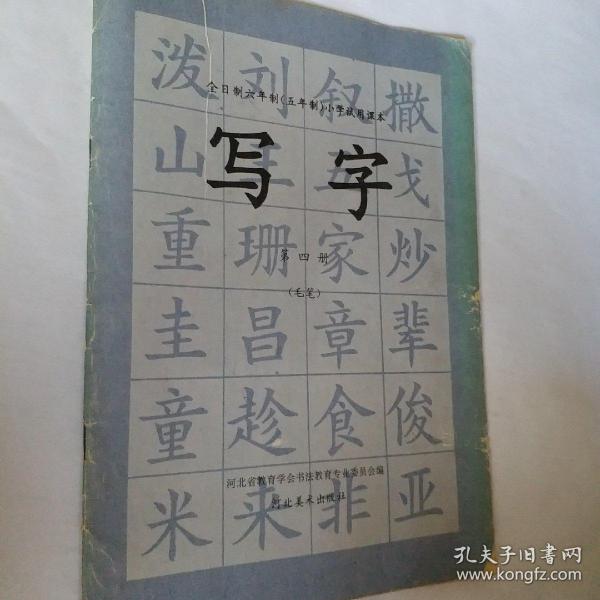 泼刘叙撒
全日制六年制(五年制)小学试用课本
写字
山王五戈
重珊家炒
第四册
(毛笔)
圭昌章辈
童趁食俊
河北省教育学会书法教育专业委员会编
河北美术出版社
米来非亚
孔夫子旧书网
www.kongfz.com